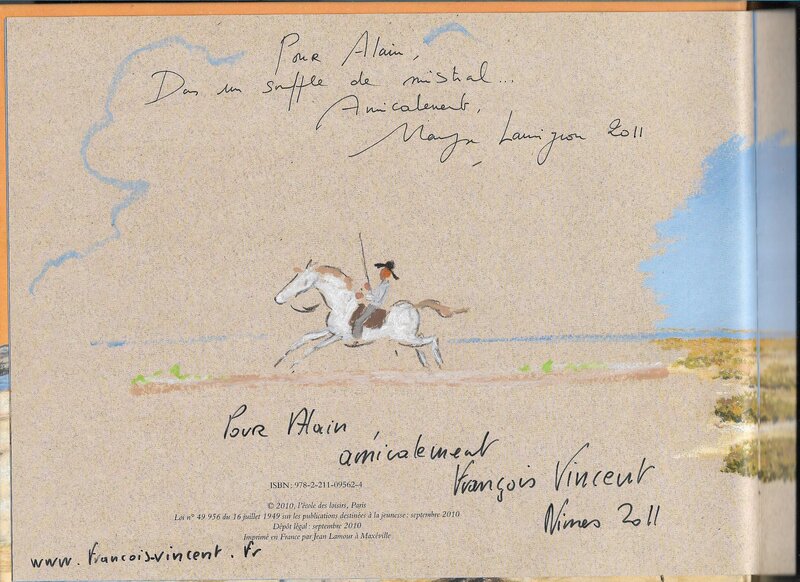 Pour Alain,
Dans un souffle de mistral...
Amicalement,
Lamigeon 2011
Pour Alain
amicalement
François Vincent
Nîmes 2011
ISBN : 978-2-211-09562-4
© 2010, l'école des loisirs, Paris
Loi n° 49 956 du 16 juillet 1949 sur les publications destinées à la jeunesse : septembre 2010
Dépôt légal : septembre 2010
Imprimé en France par Jean Lamour à Maxéville
www.francois-vincent.fr